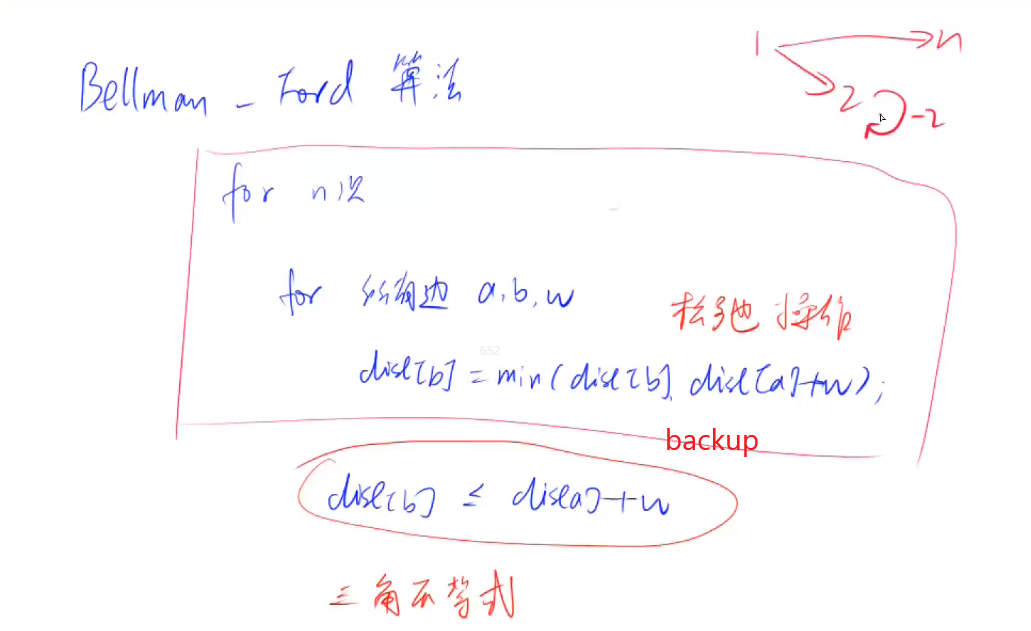 Bellman - Ford 算法
1 → n
2 -2
for n次
for 所有边 a,b,w
松弛操作
652
dist[b] = min(dist[b], dist[a]+w);
backup
dist[b] ≤ dist[a]+w
三角不等式